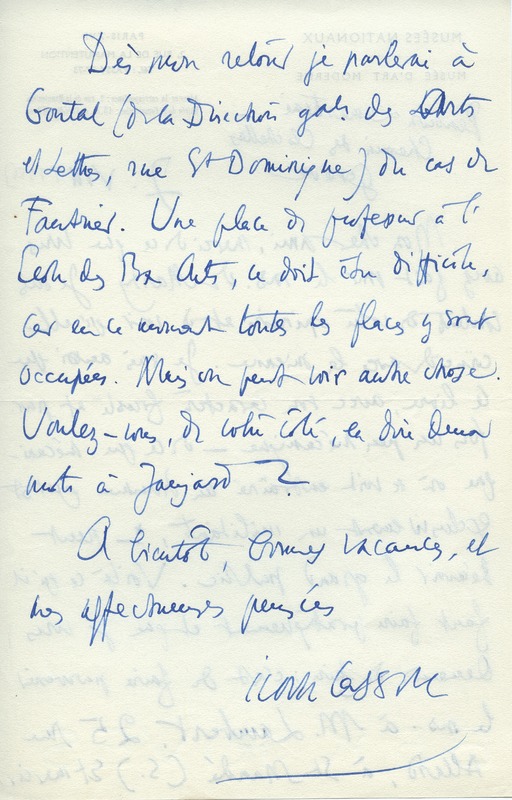 Dès mon retour je parlerai à
Goutal (de la Direction gale. des Arts
et Lettres, rue St Dominique) du cas de
Fautrier. Une place de professeur à l'
Ecole des Bx Arts, ce doit être difficile,
car en ce moment toutes les places y sont
occupées. Mais on peut voir autre chose.
Voulez-vous, de votre côté, en dire deux
mots à Jaujard ?
A bientôt, bonnes vacances, et
mes affectueuses pensées
Jean Cassou